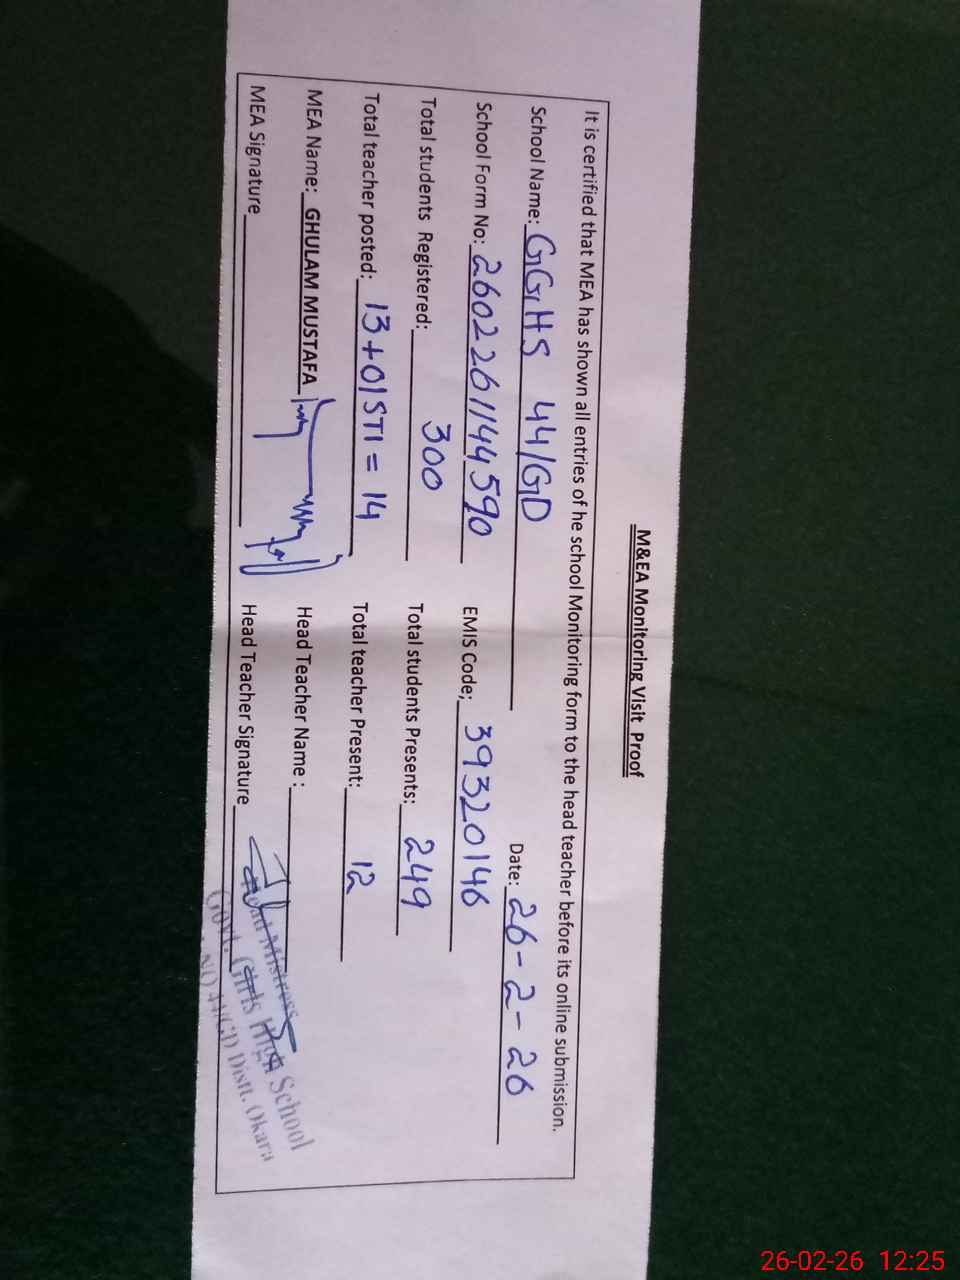 M&EA Monitoring Visit Proof
It is certified that MEA has shown all entries of he school Monitoring form to the head teacher before its online submission.
School Name: GGHS 44/GD Date: 26-2-26
School Form No: 2602261144590 EMIS Code; 39320146
Total students Registered: 300 Total students Presents: 249
Total teacher posted: 13+01STI = 14 Total teacher Present: 12
MEA Name: GHULAM MUSTAFA Head Teacher Name :
MEA Signature Head Teacher Signature
Head Mistress
Govt. Girls High School
NO 44/GD Distt. Okara
26-02-26 12:25